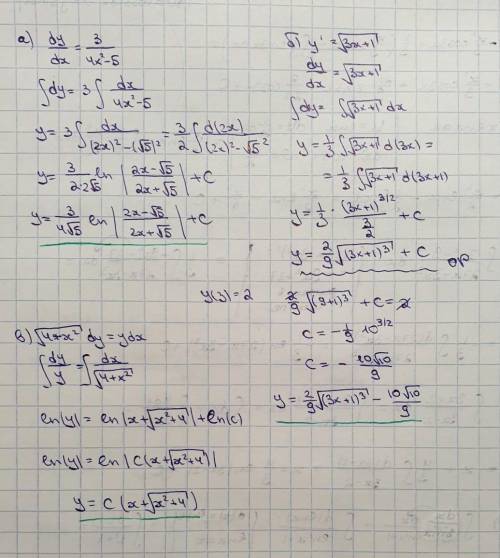 а) dy/dx = 3/(4x²-5)
∫dy = 3∫dx/(4x²-5)
y = 3∫dx/((2x)²-(√5)²) = 3/2 ∫d(2x)/((2x)²-√5²)
y = 3/(2·2√5) ln|(2x-√5)/(2x+√5)| + C
y = 3/(4√5) ln|(2x-√5)/(2x+√5)| + C
б) y' = √(3x+1)
dy/dx = √(3x+1)
∫dy = ∫√(3x+1) dx
y = 1/3 ∫√(3x+1) d(3x) =
= 1/3 ∫√(3x+1) d(3x+1)
y = 1/3 · (3x+1)^(3/2)/(3/2) + C
y = 2/9 √(3x+1)³ + C ор
y(3) = 2
2/9 √(9+1)³ + C = 2
C = -1/9 10^(3/2)
C = - 10√10/9
y = 2/9 √(3x+1)³ - 10√10/9
в) √(4+x²) dy = ydx
∫dy/y = ∫dx/√(4+x²)
ln|y| = ln|x+√(x²+4)| + ln(c)
ln|y| = ln|C(x+√(x²+4))|
y = C (x+√(x²+4))